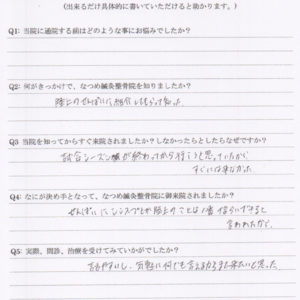 (出来るだけ具体的に書いていただけると助かります。)
Q1: 当院に通院する前はどのような事にお悩みでしたか?
Q2: 何がきっかけで、なつめ鍼灸整骨院を知りましたか?
陸上のせんぱいに紹介してもらって知った。
Q3 当院を知ってからすぐ来院されましたか?しなかったらとしたらなぜですか?
試合シーズンが終わってから行こうと思っていたから
すぐには来なかった。
Q4: なにが決め手となって、なつめ鍼灸整骨院に御来院されましたか?
せんぱいに
陸上のことは1番
できると
言われたから。
Q5: 実際、問診、治療を受けてみていかがでしたか?
話やすいし、気軽に何でも言えるからまた来たいと思った。